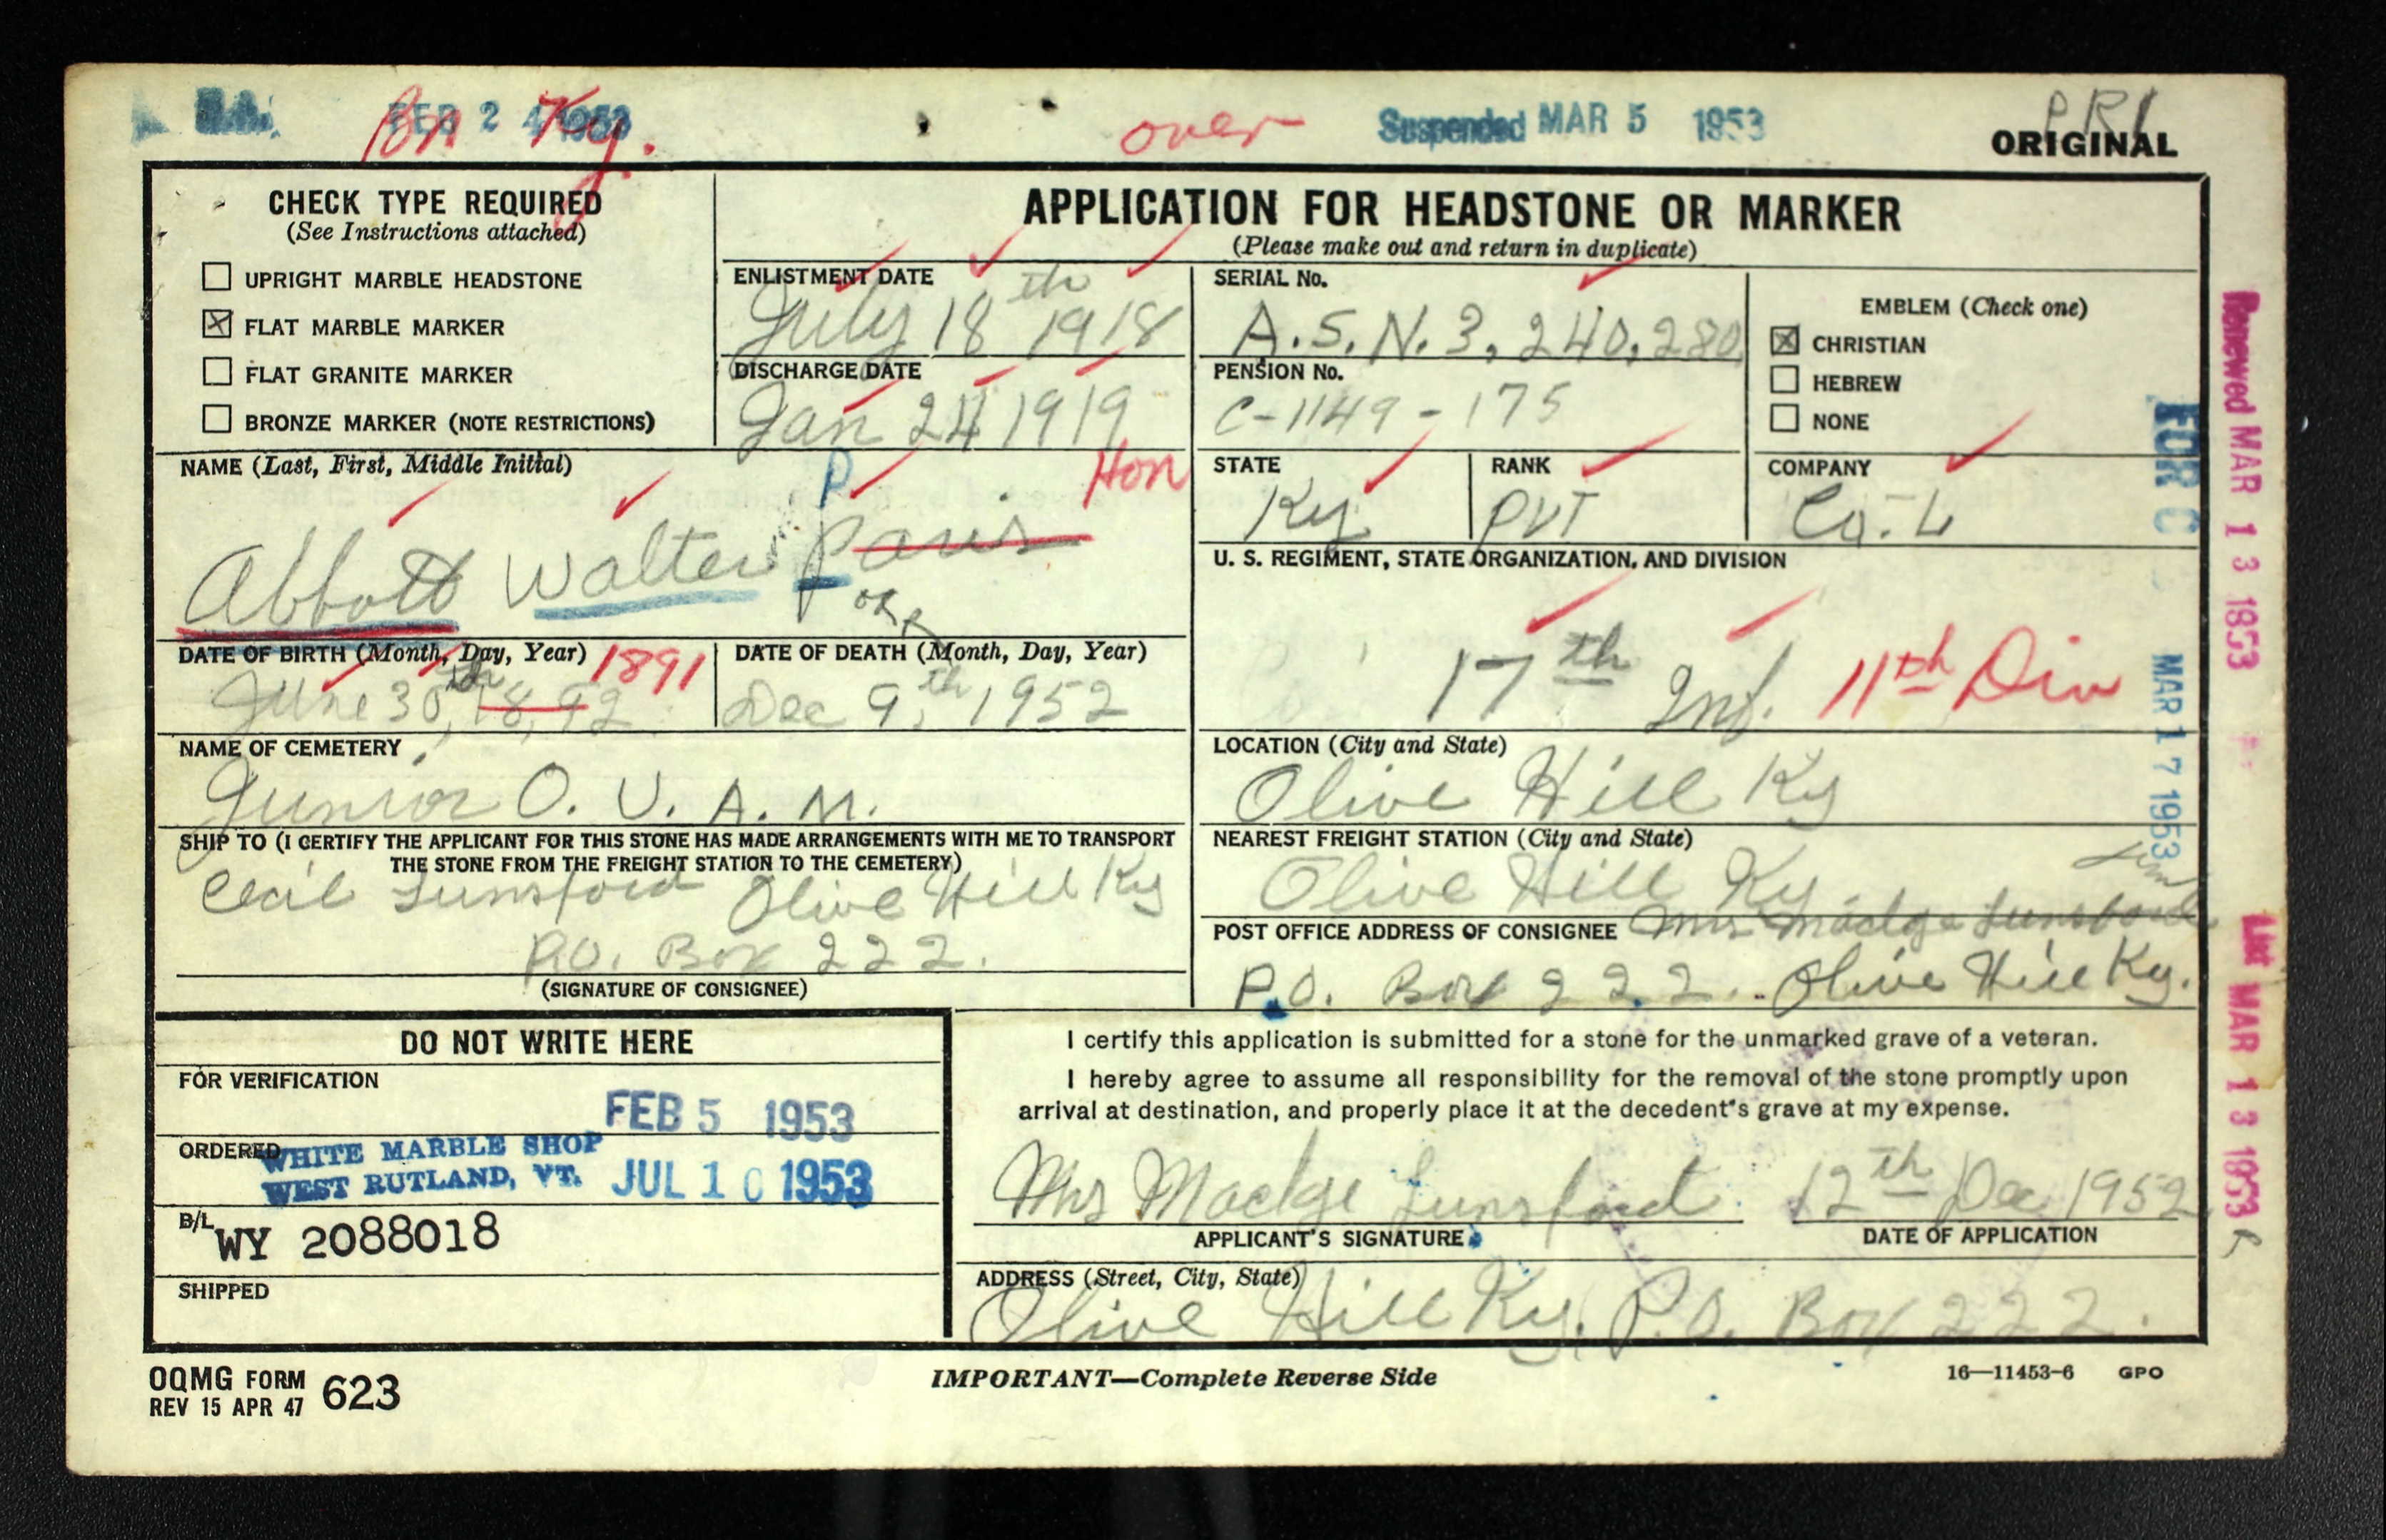 FEB 2 4 1953
Bn Ky.
over
Suspended MAR 5 1953
PRI
ORIGINAL
CHECK TYPE REQUIRED
(See Instructions attached)
UPRIGHT MARBLE HEADSTONE
☒ FLAT MARBLE MARKER
FLAT GRANITE MARKER
BRONZE MARKER (NOTE RESTRICTIONS)
APPLICATION FOR HEADSTONE OR MARKER
(Please make out and return in duplicate)
ENLISTMENT DATE
July 18th 1918
DISCHARGE DATE
Jan 24 1919
SERIAL No.
A.S.N. 3,240,280
PENSION No.
C-1149-175
EMBLEM (Check one)
☒ CHRISTIAN
HEBREW
NONE
NAME (Last, First, Middle Initial)
P Hon
Abbott Walter Paris
OK
STATE
Ky
RANK
PVT
COMPANY
Co. L
U. S. REGIMENT, STATE ORGANIZATION, AND DIVISION
17th Inf. 11th Div
DATE OF BIRTH (Month, Day, Year) 1891
June 30th, 1892
DATE OF DEATH (Month, Day, Year)
Dec 9th, 1952
NAME OF CEMETERY
Junior O. U. A. M.
LOCATION (City and State)
Olive Hill Ky
SHIP TO (I CERTIFY THE APPLICANT FOR THIS STONE HAS MADE ARRANGEMENTS WITH ME TO TRANSPORT
THE STONE FROM THE FREIGHT STATION TO THE CEMETERY)
Cecil Lunsford Olive Hill Ky
P.O. Box 222.
(SIGNATURE OF CONSIGNEE)
NEAREST FREIGHT STATION (City and State)
Olive Hill Ky
POST OFFICE ADDRESS OF CONSIGNEE Mrs Madge Lunsford
P.O. Box 222. Olive Hill Ky.
DO NOT WRITE HERE
FOR VERIFICATION
FEB 5 1953
ORDERED
WHITE MARBLE SHOP
WEST RUTLAND, VT. JUL 10 1953
B/L
WY 2088018
SHIPPED
I certify this application is submitted for a stone for the unmarked grave of a veteran.
I hereby agree to assume all responsibility for the removal of the stone promptly upon
arrival at destination, and properly place it at the decedent's grave at my expense.
Mrs Madge Lunsford 12th Dec 1952
APPLICANT'S SIGNATURE
DATE OF APPLICATION
ADDRESS (Street, City, State)
Olive Hill Ky. P.O. Box 222.
OQMG FORM 623
REV 15 APR 47
IMPORTANT—Complete Reverse Side
16—11453-6 GPO
FOR C
MAR 17 1953
Renewed MAR 13 1953
List MAR 13 1953